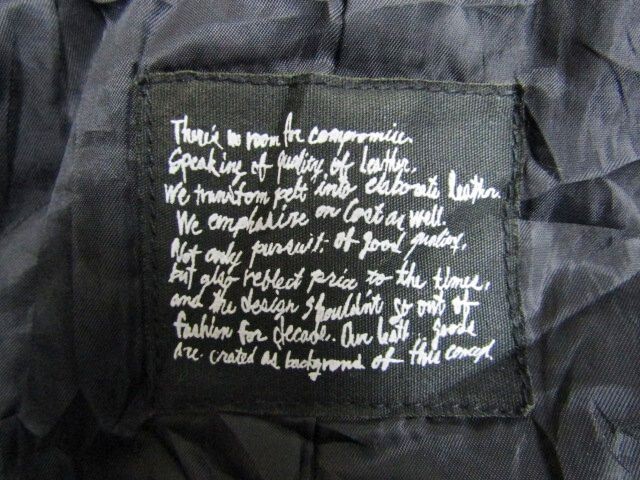 There's no room for compromise.
Speaking of quality of leather.
We transform pelt into elaborate leather.
We emphasize on Cost as well.
Not only pursuit of good quality,
but also reflect price to the times,
and the design shouldn't go out of
fashion for decade. Our leath goods
are crated as background of this concept